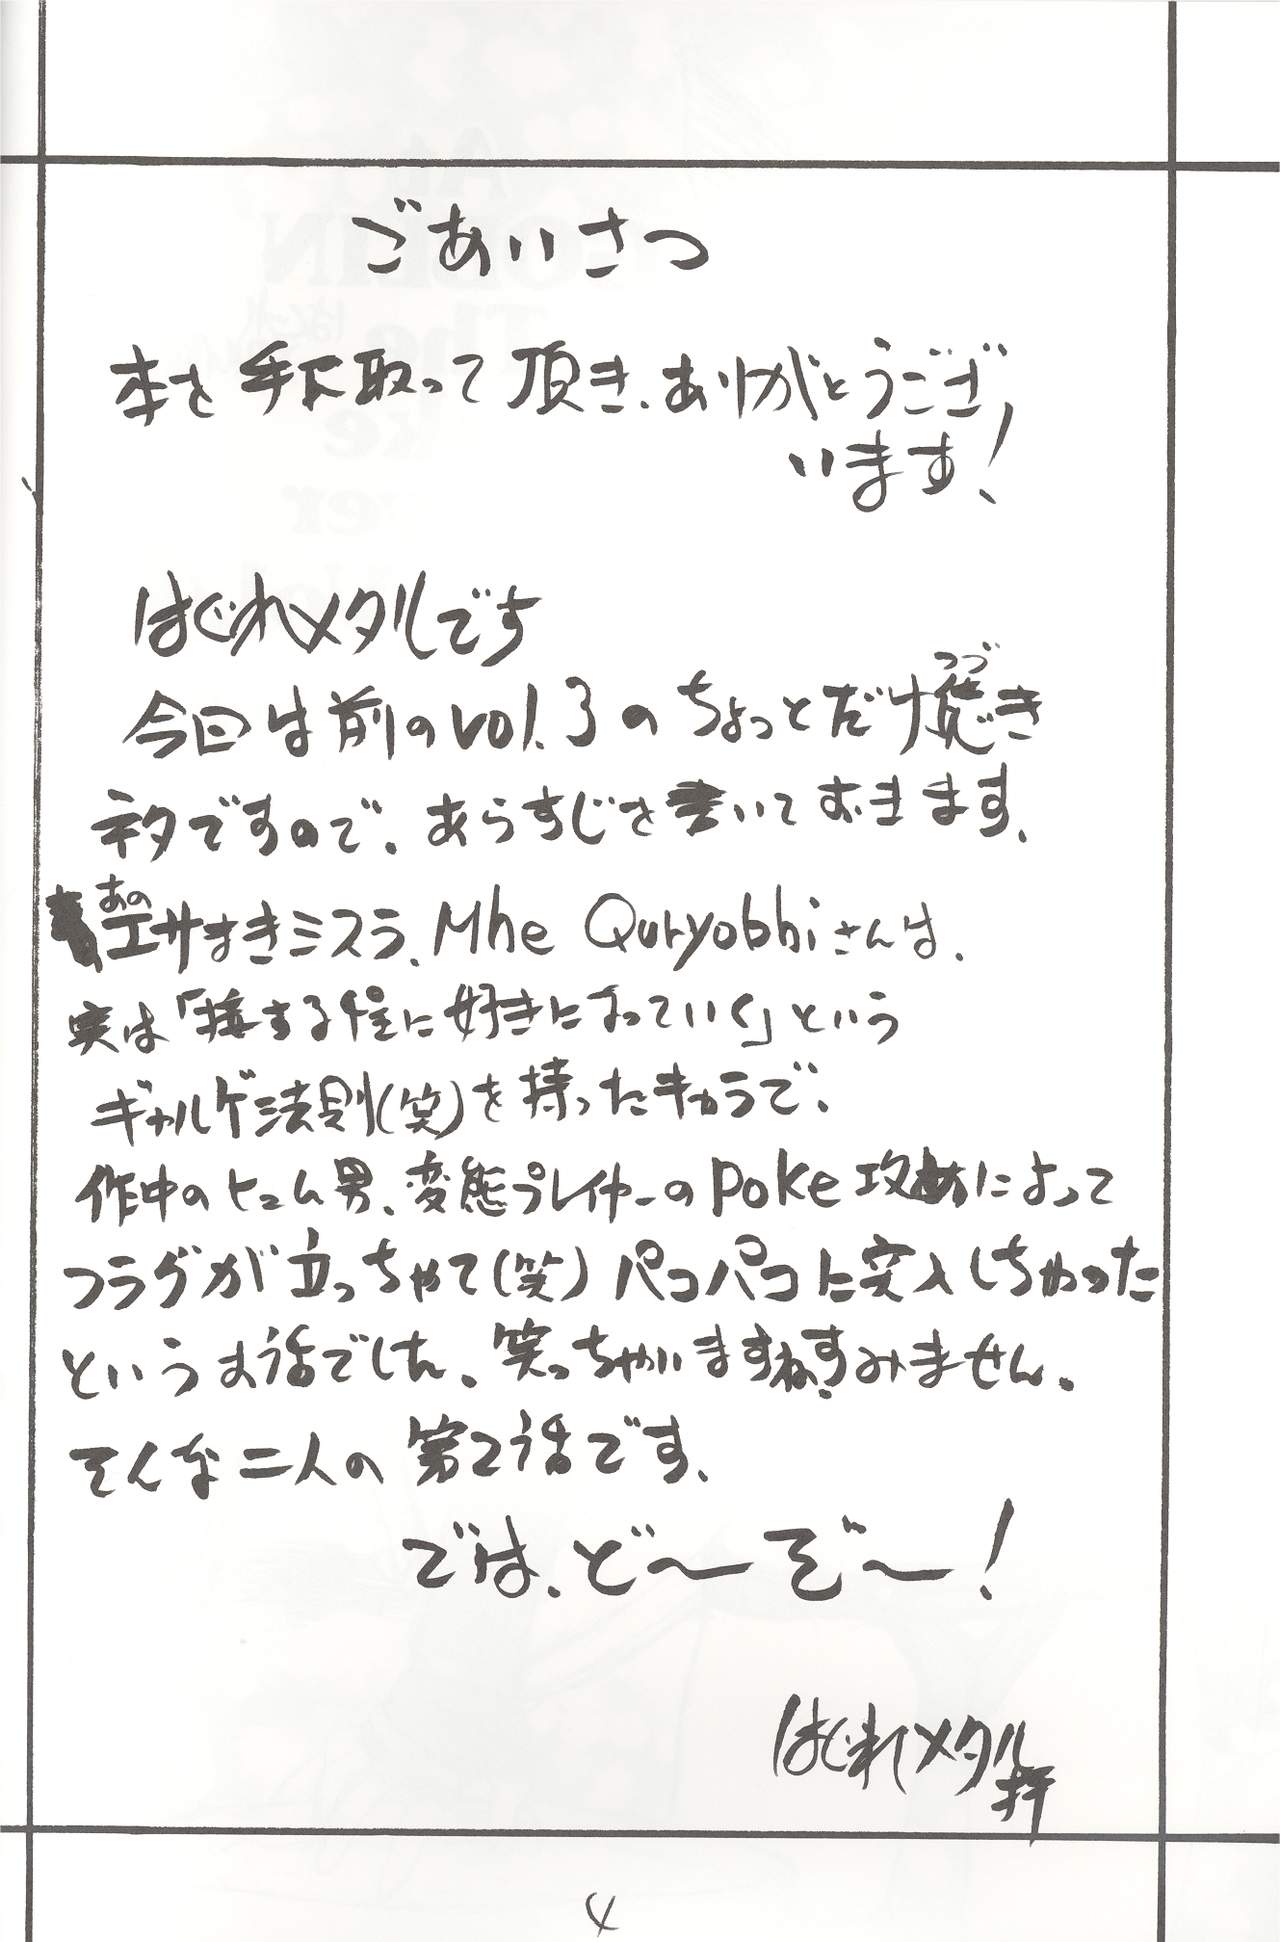 ごあいさつ
本を手に取って頂き、ありがとうござ
います!
はぐれメタルでち
今回は前のvol.3のちょっとだけ続き
つづ
ネタですので、あらすじを書いておきます、
あの
エサまきミスラ、Mhe Quryobhiさんは、
実は「接する程に好きになっていく」という
ギャルゲ法則(笑)を持ったキャラで、
作中のヒュム男、変態プレイヤーのpoke攻めによって
フラグが立っちゃて(笑)パコパコに突入しちゃった
というお話でした、笑っちゃいますね、すみません、
そんな二人の第2話です、
では、ど〜ぞ〜!
はぐれメタル
拝
4